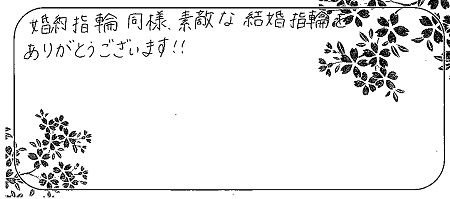 婚約指輪同様、素敵な結婚指輪を
ありがとうございます!!